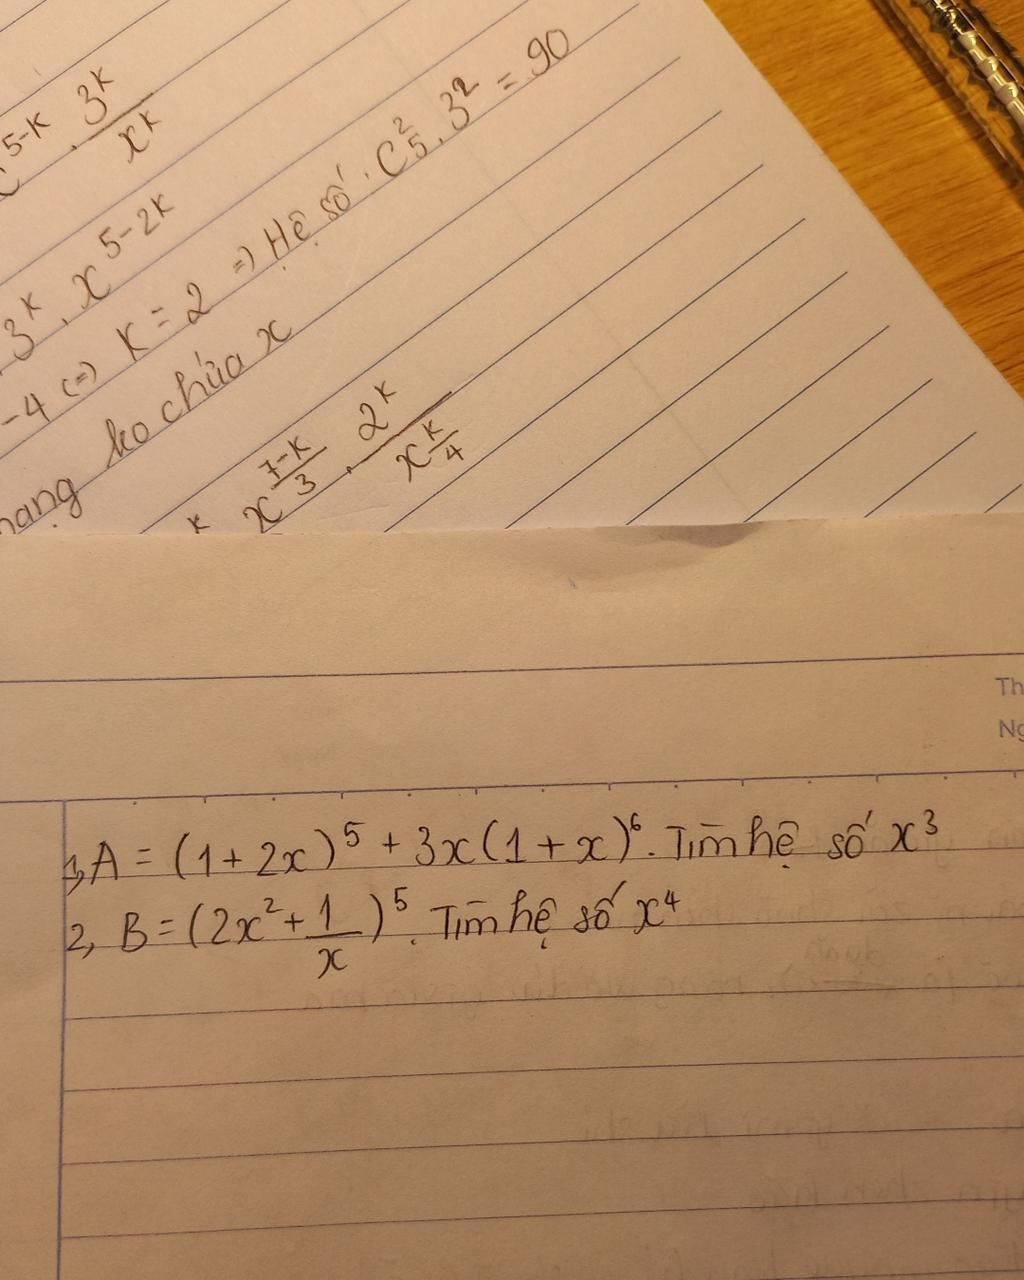 5-K . 3^K / x^K
3^K . x^{5-2K}
-4 (=) K = 2 =) Hệ số . C_5^2 . 3^2 = 90
ko chứa x
K x^{(7-K)/3} . 2^K / x^{K/4}
Th
Ng
1, A = (1 + 2x)^5 + 3x(1 + x)^6 . Tìm hệ số x^3
2, B = (2x^2 + 1/x)^5 . Tìm hệ số x^4